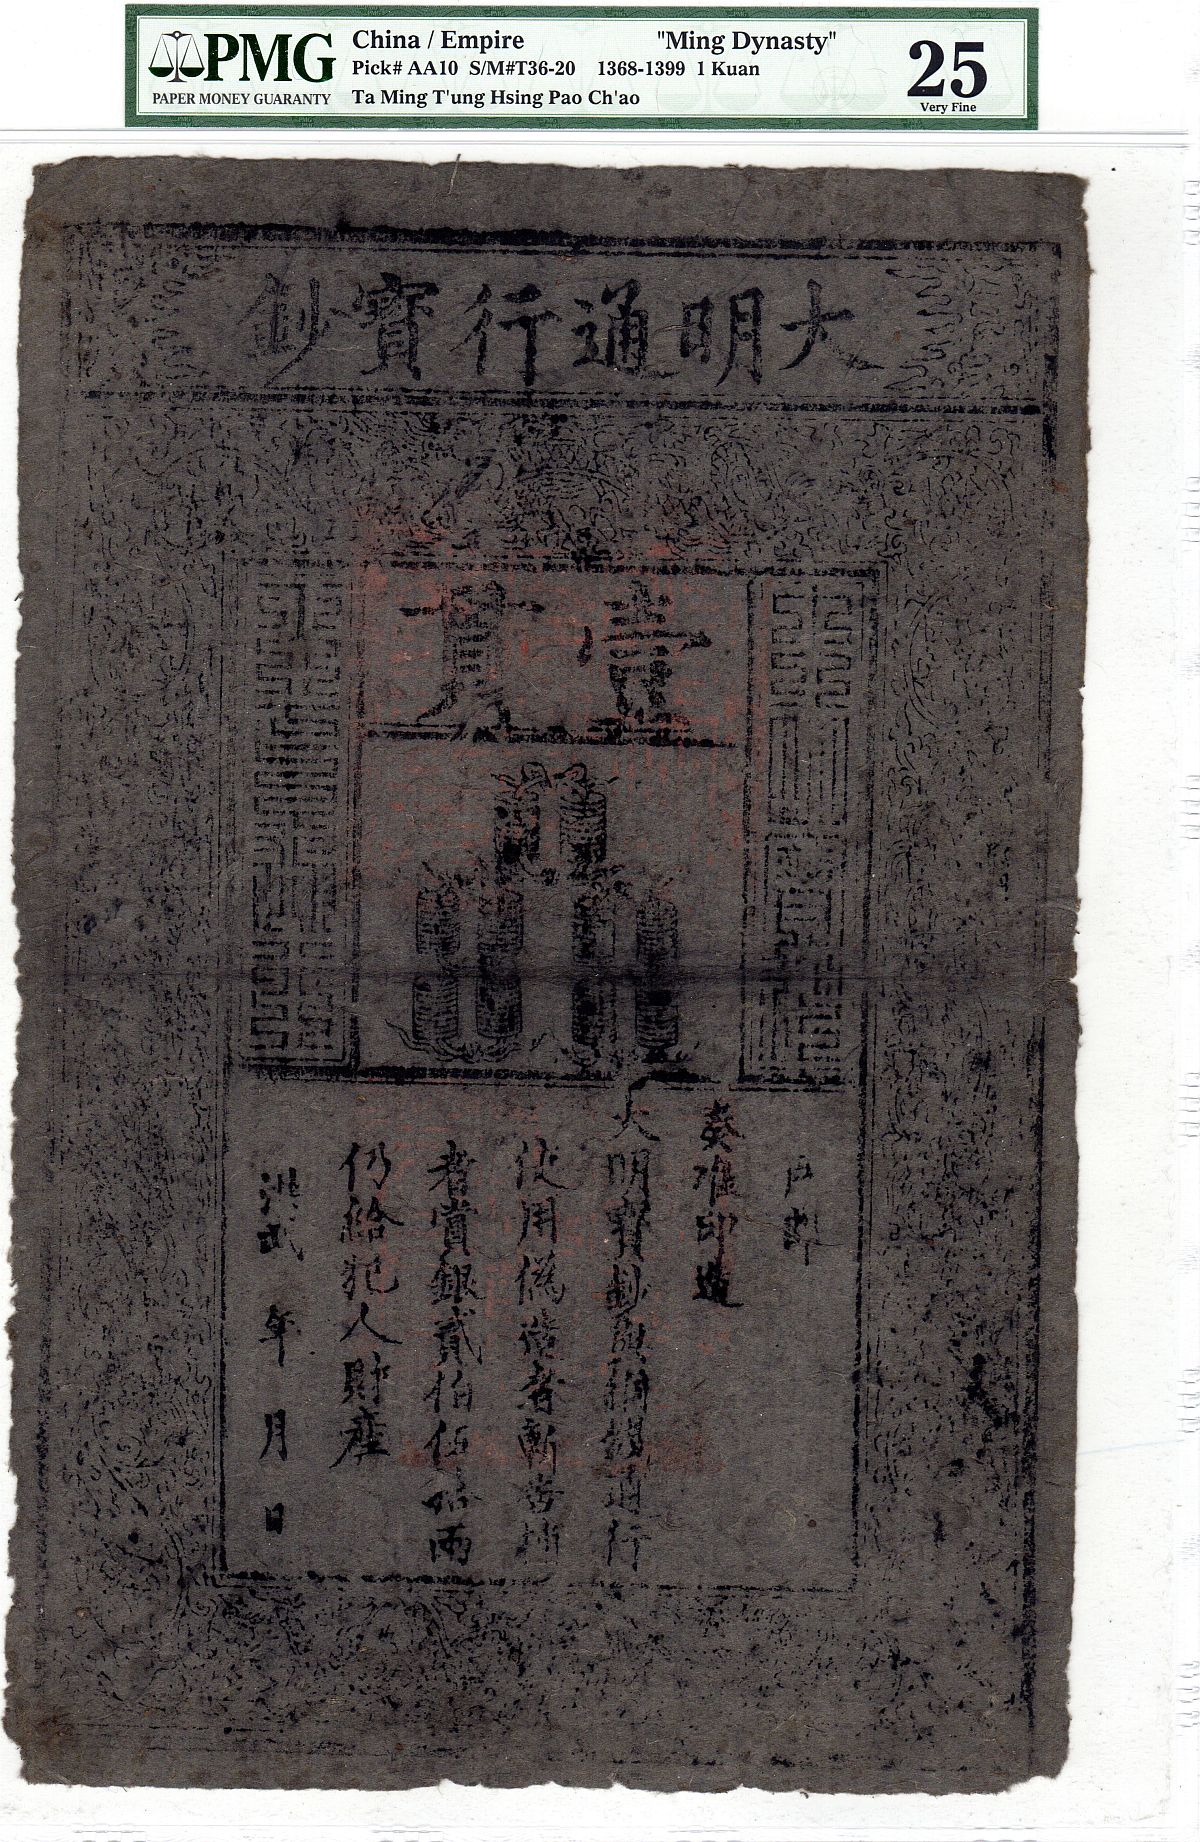 PMG
PAPER MONEY GUARANTY
China / Empire "Ming Dynasty"
Pick# AA10 S/M#T36-20 1368-1399 1 Kuan
Ta Ming T'ung Hsing Pao Ch'ao
25
Very Fine
大明通行寶鈔
壹貫
大明寶鈔
天下通行
戶部
奏准印造
大明寶鈔與銅錢通行
使用偽造者斬告捕
者賞銀貳伯伍拾兩
仍給犯人財產
洪武 年 月 日